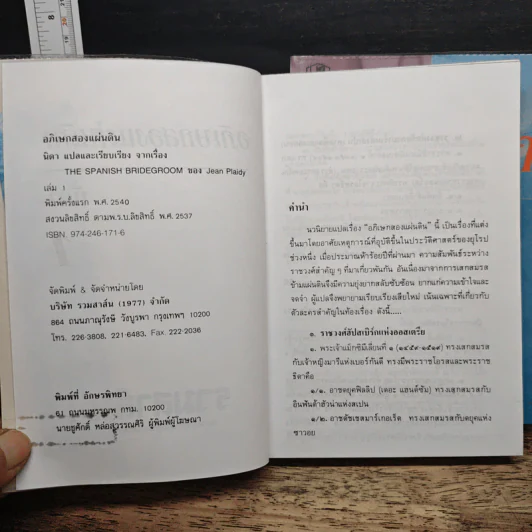 อภิเษกสองแผ่นดิน
นิดา แปลและเรียบเรียง จากเรื่อง
THE SPANISH BRIDEGROOM ของ Jean Plaidy
เล่ม 1
พิมพ์ครั้งแรก พ.ศ. 2540
สงวนลิขสิทธิ์ ตามพ.ร.บ.ลิขสิทธิ์ พ.ศ. 2537
ISBN. 974-246-171-6
จัดพิมพ์ & จัดจำหน่ายโดย
บริษัท รวมสาส์น (1977) จำกัด
864 ถนนภาณุรังษี วังบูรพา กรุงเทพฯ 10200
โทร. 226-3808, 221-6483, Fax. 222-2036
พิมพ์ที่ อักษรพิทยา
61 ถนนมหรรณพ กทม. 10200
นายชูศักดิ์ หล่อสุวรรณศิริ ผู้พิมพ์ผู้โฆษณา
คำนำ
นวนิยายแปลเรื่อง "อภิเษกสองแผ่นดิน" นี้ เป็นเรื่องที่แต่ง
ขึ้นมาโดยอาศัยเหตุการณ์ที่อุบัติขึ้นในประวัติศาสตร์ของยุโรป
ช่วงหนึ่ง เมื่อประมาณห้าร้อยปีที่ผ่านมา ความสัมพันธ์ระหว่าง
ราชวงศ์สำคัญ ๆ ที่มาเกี่ยวพันกัน อันเนื่องมาจากการเสกสมรส
ข้ามแผ่นดินจึงมีความยุ่งยากสลับซับซ้อน ยากแก่ความเข้าใจและ
จดจำ ผู้แปลจึงพยายามเรียบเรียงเสียใหม่ เน้นเฉพาะที่เกี่ยวกับ
ตัวละครสำคัญในท้องเรื่อง ดังนี้.....
๑. ราชวงศ์ฮัปสเบิร์กแห่งออสเตรีย
๑. พระเจ้าแม็กซิมิเลี่ยนที่ ๑ (๑๔๕๙-๑๕๑๙) ทรงเสกสมรส
กับเจ้าหญิงมารีแห่งเบอร์กันดี ทรงมีพระราชโอรสและพระราช
ธิดาคือ
๑/๑. อาชดยุคฟิลลิป (เดอะ แฮนด์ซัม) ทรงเสกสมรสกับ
อินฟันต้าฮัวน่าแห่งสเปน
๑/๒. อาชดัชเชสมาร์เกอเร็ต ทรงเสกสมรสกับดยุคแห่ง
ซาวอย